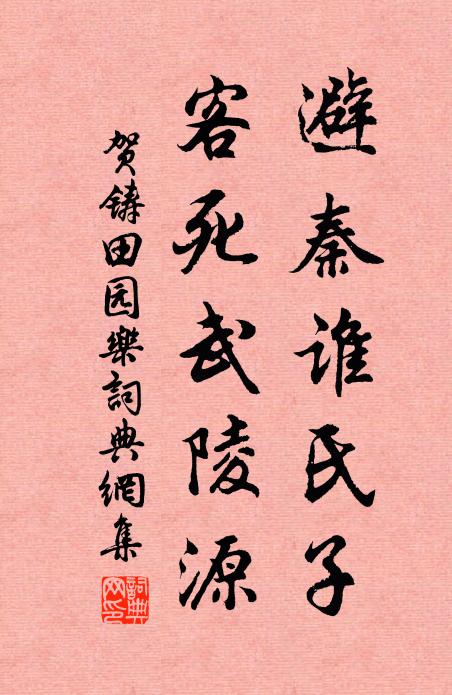 避秦谁氏子
客死武陵源
贺铸田园樂詞典網集
詞典网印